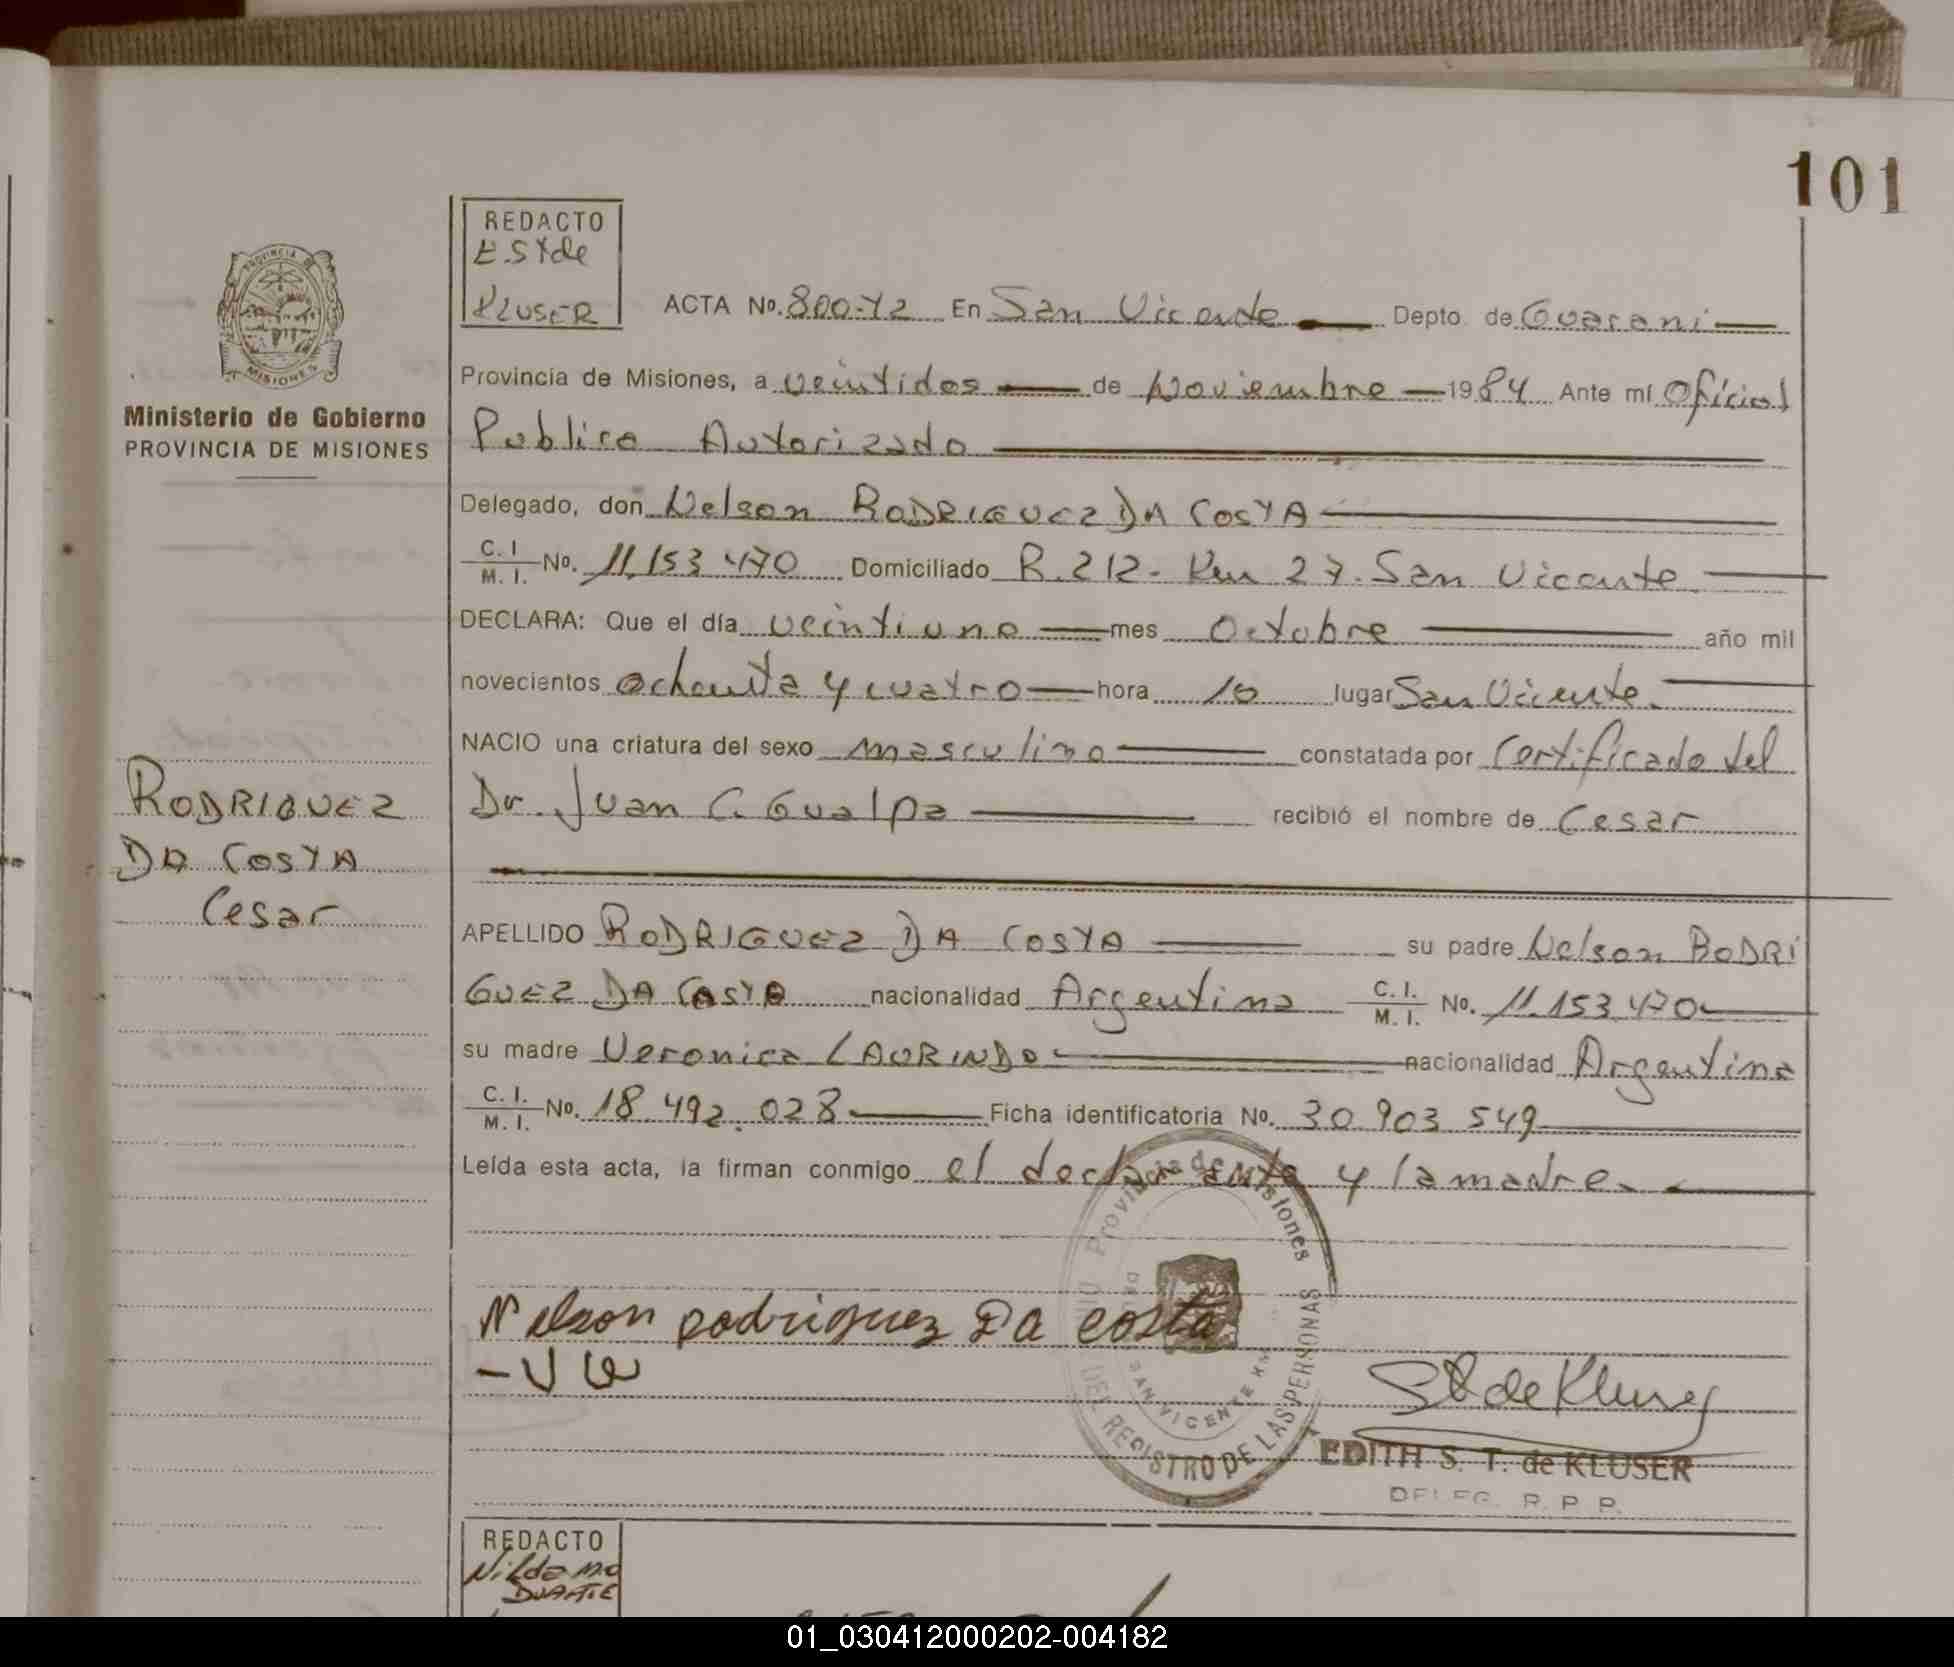 101
REDACTO
E.S.T de
KLUSER
ACTA No. 800-T2 En San Vicente Depto. de Guarani
PROVINCIA DE
MISIONES
Ministerio de Gobierno
PROVINCIA DE MISIONES
Provincia de Misiones, a veintidos de Noviembre 1984 Ante mí Oficial
Publico Autorizado
Delegado, don Nelson RODRIGUEZ DA COSTA
C. I. M. I. No. 11.153 470 Domiciliado R. 212 - Km 27. San Vicente
DECLARA: Que el día veintiuno mes Octubre año mil
novecientos ochenta y cuatro hora 10 lugar San Vicente.
NACIO una criatura del sexo masculino constatada por Certificado del
Dr. Juan C. Gualpa recibió el nombre de Cesar
RODRIGUEZ
DA COSTA
Cesar
APELLIDO RODRIGUEZ DA COSTA su padre Nelson RODRI
GUEZ DA COSTA nacionalidad Argentina C. I. M. I. No. 11.153 470
su madre Veronica LAURINDO nacionalidad Argentina
C. I. M. I. No. 18.492.028 Ficha identificatoria No. 30 903 549
Leída esta acta, la firman conmigo el declarante y la madre.
Provincia de Misiones
DEL REGISTRO DE LAS PERSONAS
SAN VICENTE
Nelson rodriguez Da costa
St de Kluser
EDITH S. T. de KLUSER
DELEG. R. P. P.
REDACTO
Nilda
DUARTE
01_030412000202-004182